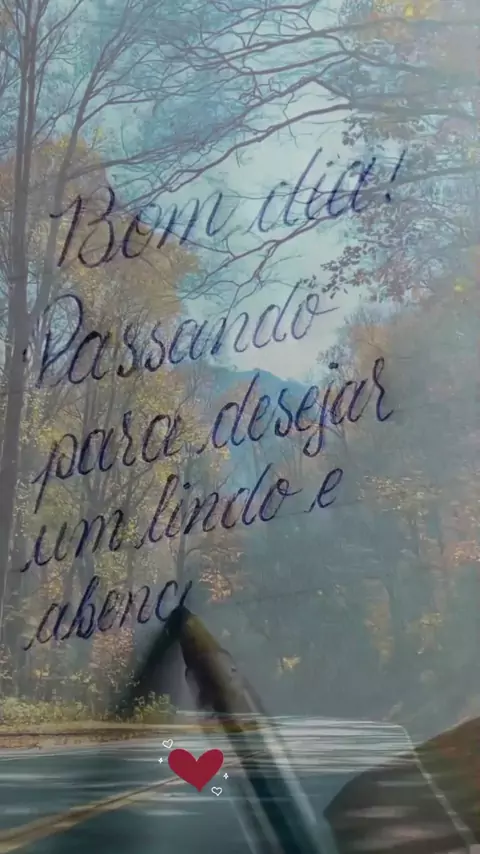 Bom dia!
Passando
para desejar
um lindo e
abenç